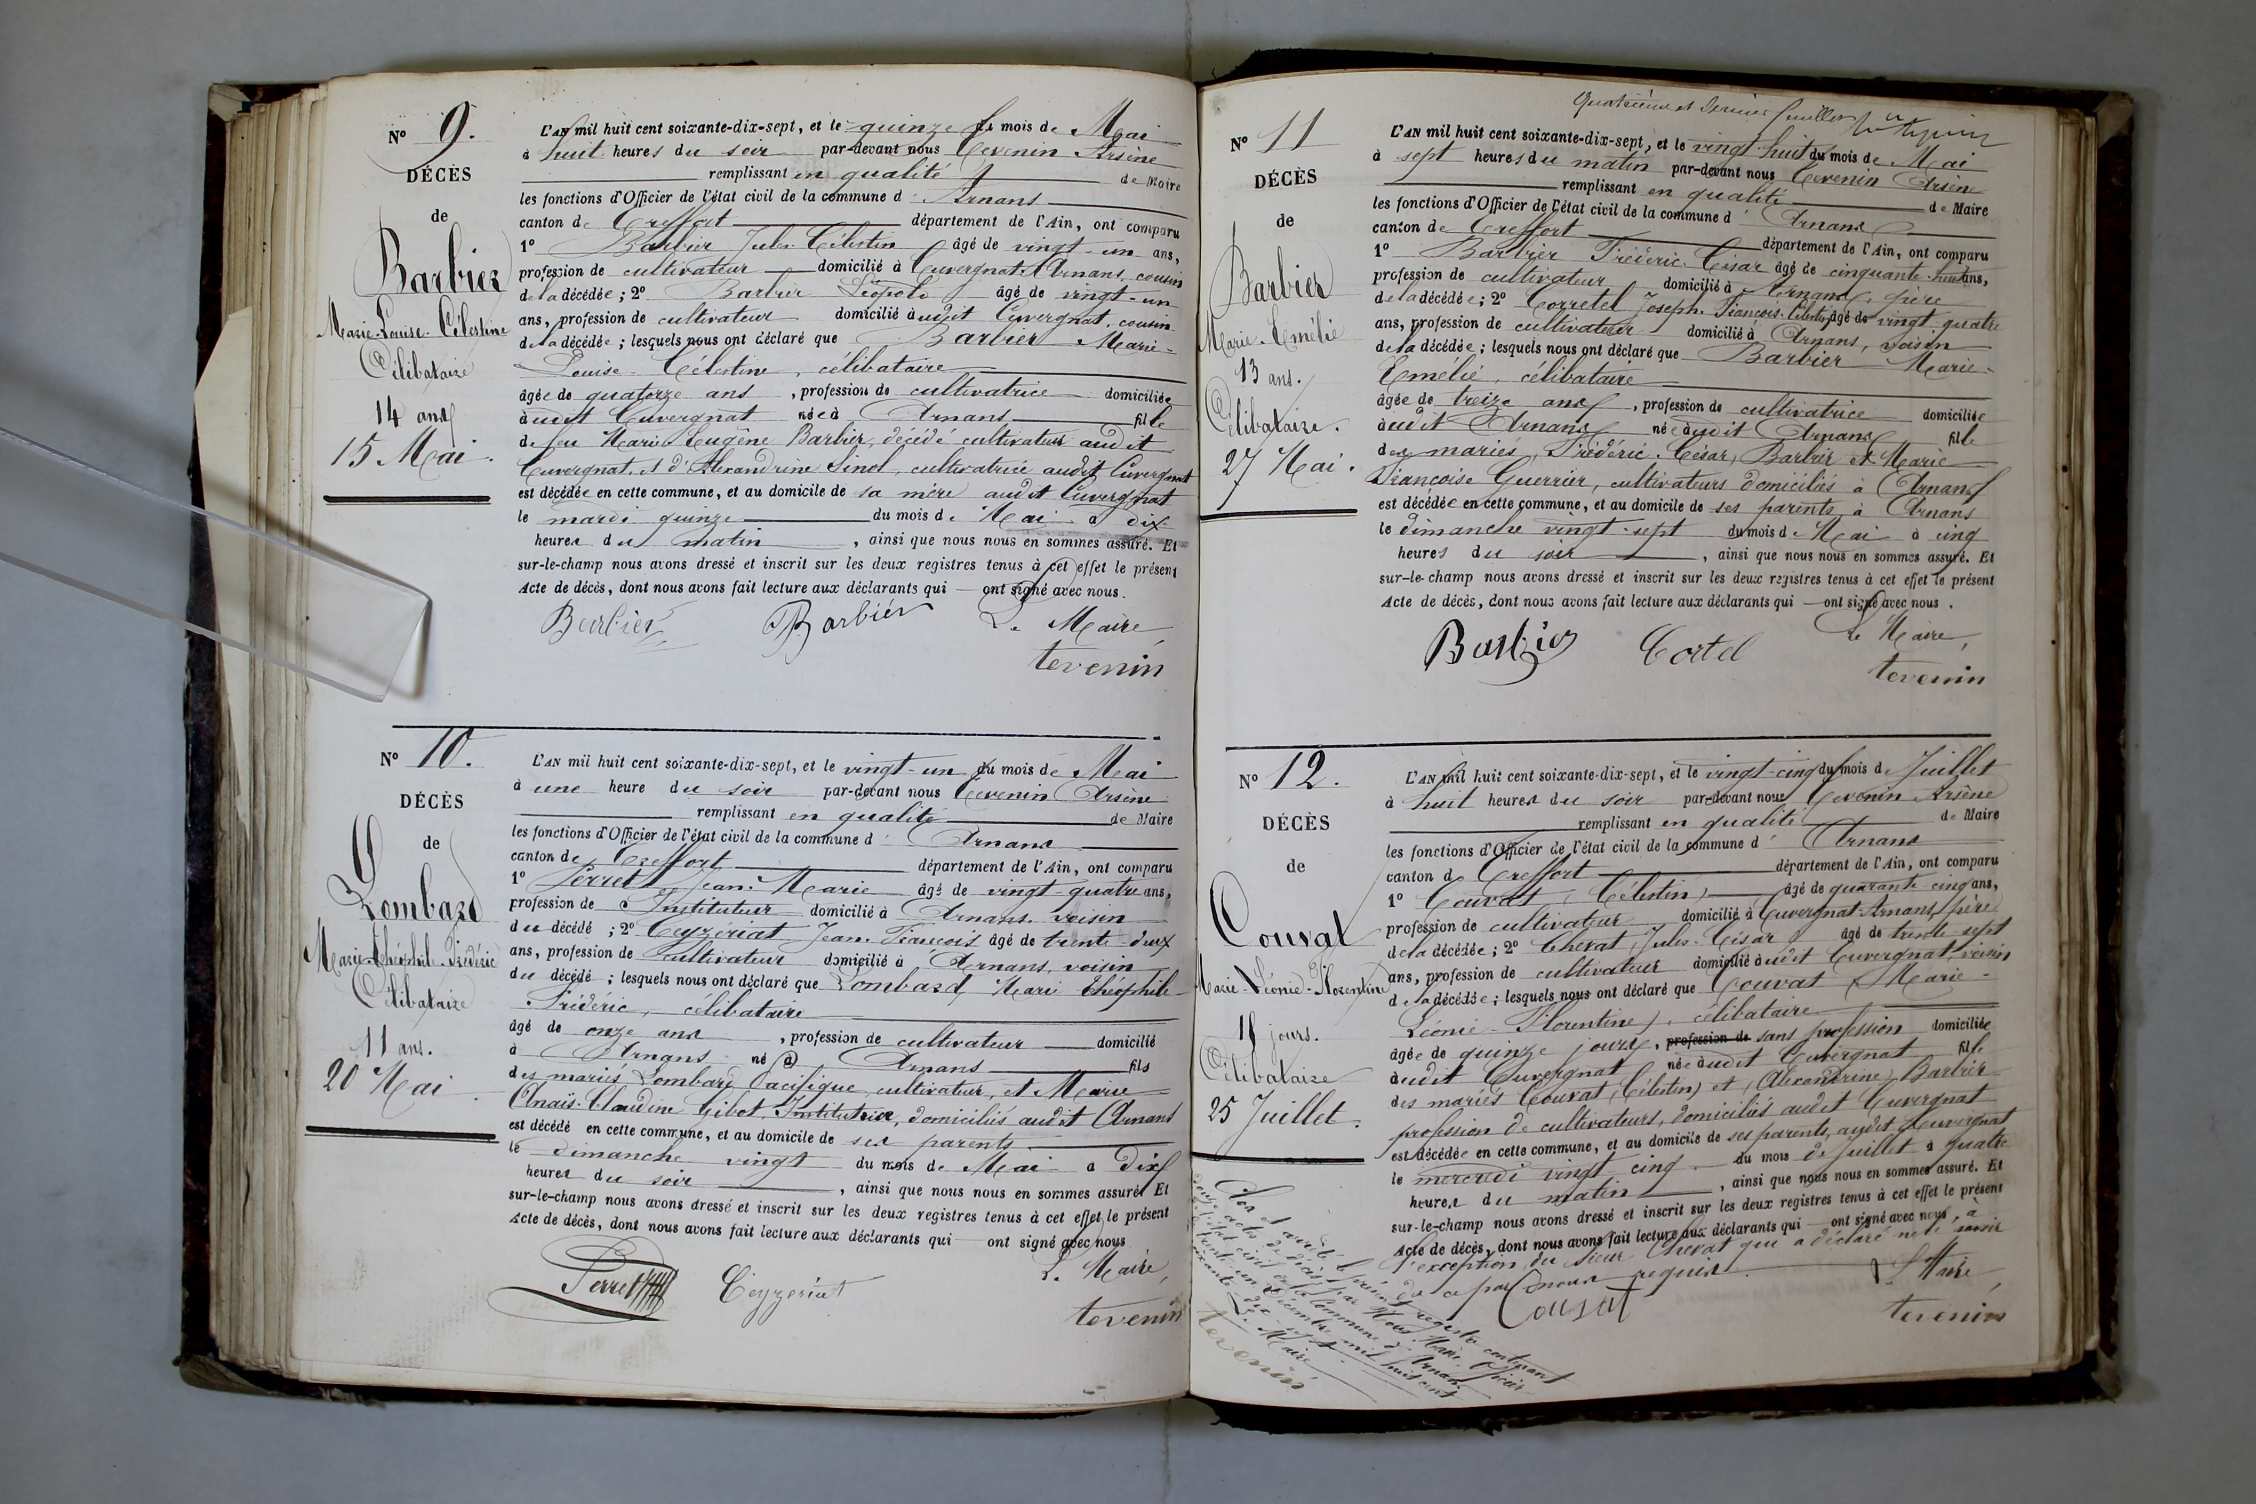 N° 9.
DÉCÈS
de
Barbier
Marie-Louise-Célestine
Célibataire
14 ans
15 Mai.
L'AN mil huit cent soixante-dix-sept, et le quinze du mois de Mai
à huit heures du soir par-devant nous Tevenin Arsène
remplissant en qualité de Maire
les fonctions d'Officier de l'état civil de la commune d' Arnans
canton de Treffort département de l'Ain, ont comparu
1° Barbier Jules Célestin âgé de vingt-un ans,
profession de cultivateur domicilié à Cuvergnat, Arnans, cousin
de la décédée; 2° Barbier Léopold âgé de vingt-un
ans, profession de cultivateur domicilié audit Cuvergnat, cousin
de la décédée; lesquels nous ont déclaré que Barbier Marie-
Louise-Célestine, célibataire
âgée de quatorze ans, profession de cultivatrice domiciliée
audit Cuvergnat née à Arnans fille
de feu Marie Eugène Barbier, décédé cultivateur audit
Cuvergnat, et d'Alexandrine Sinol, cultivatrice audit Cuvergnat
est décédée en cette commune, et au domicile de sa mère audit Cuvergnat
le mardi quinze du mois de Mai à dix
heures du matin, ainsi que nous nous en sommes assuré. Et
sur-le-champ nous avons dressé et inscrit sur les deux registres tenus à cet effet le présent
Acte de décès, dont nous avons fait lecture aux déclarants qui — ont signé avec nous.
Barbier Barbiér Le Maire,
tevenin
N° 10.
DÉCÈS
de
Lombard
Marie-Théophile-Frédéric
Célibataire
11 ans.
20 Mai.
L'AN mil huit cent soixante-dix-sept, et le vingt-un du mois de Mai
à une heure du soir par-devant nous Tevenin Arsène
remplissant en qualité de Maire
les fonctions d'Officier de l'état civil de la commune d' Arnans
canton de Treffort département de l'Ain, ont comparu
1° Perret Jean-Marie âgé de vingt-quatre ans,
profession de Instituteur domicilié à Arnans, voisin
du décédé; 2° Ceyzeriat Jean-François âgé de trente-deux
ans, profession de cultivateur domicilié à Arnans, voisin
du décédé; lesquels nous ont déclaré que Lombard Marie Théophile
Frédéric, célibataire
âgé de onze ans, profession de cultivateur domicilié
à Arnans né à Arnans fils
des mariés Lombard Pacifique, cultivateur, et Marie
Anaïs-Claudine Gibot, Institutrice, domiciliés audit Arnans
est décédé en cette commune, et au domicile de ses parents
le dimanche vingt du mois de Mai à dix
heures du soir, ainsi que nous nous en sommes assuré. Et
sur-le-champ nous avons dressé et inscrit sur les deux registres tenus à cet effet le présent
Acte de décès, dont nous avons fait lecture aux déclarants qui — ont signé avec nous
Perret Ceyzeriat Le Maire,
tevenin
Quatrième et dernier feuillet
N° 11
DÉCÈS
de
Barbier
Marie-Emélie
13 ans.
Célibataire.
27 Mai.
L'AN mil huit cent soixante-dix-sept, et le vingt-huit du mois de Mai
à sept heures du matin par-devant nous Tevenin Arsène
remplissant en qualité de Maire
les fonctions d'Officier de l'état civil de la commune d' Arnans
canton de Treffort département de l'Ain, ont comparu
1° Barbier Fréderic-César âgé de cinquante-huit ans,
profession de cultivateur domicilié à Arnans, père
de la décédée; 2° Corretel Joseph-François-Célestin âgé de vingt quatre
ans, profession de cultivateur domicilié à Arnans, voisin
de la décédée; lesquels nous ont déclaré que Barbier Marie-
Emélie, célibataire
âgée de treize ans, profession de cultivatrice domiciliée
audit Arnans née audit Arnans fille
des mariés Frédéric-César Barbier et Marie
Françoise Guerrier, cultivateurs domiciliés à Arnans
est décédée en cette commune, et au domicile de ses parents à Arnans
le dimanche vingt-sept du mois de Mai à cinq
heures du soir, ainsi que nous nous en sommes assuré. Et
sur-le-champ nous avons dressé et inscrit sur les deux registres tenus à cet effet le présent
Acte de décès, dont nous avons fait lecture aux déclarants qui — ont signé avec nous.
Barbier Cortel Le Maire,
tevenin
N° 12.
DÉCÈS
de
Couvat
Marie-Léonie-Florentine
15 jours.
Célibataire
25 Juillet.
L'AN mil huit cent soixante-dix-sept, et le vingt-cinq du mois de Juillet
à huit heures du soir par-devant nous Tevenin Arsène
remplissant en qualité de Maire
les fonctions d'Officier de l'état civil de la commune d' Arnans
canton de Treffort département de l'Ain, ont comparu
1° Couvat (Célestin) âgé de quarante cinq ans,
profession de cultivateur domicilié à Cuvergnat-Arnans, père
de la décédée; 2° Chevat Jules-César âgé de trente sept
ans, profession de cultivateur domicilié audit Cuvergnat, voisin
de la décédée; lesquels nous ont déclaré que Couvat (Marie-
Léonie-Florentine), célibataire
âgée de quinze jours, profession de sans profession domiciliée
audit Cuvergnat née audit Cuvergnat fille
des mariés Couvat (Célestin) et (Alexandrine) Barbier
profession de cultivateurs, domiciliés audit Cuvergnat
est décédée en cette commune, et au domicile de ses parents, audit Cuvergnat
le mercredi vingt cinq du mois de Juillet à quatre
heures du matin, ainsi que nous nous en sommes assuré. Et
sur-le-champ nous avons dressé et inscrit sur les deux registres tenus à cet effet le présent
Acte de décès, dont nous avons fait lecture aux déclarants qui — ont signé avec nous, à
l'exception du sieur Chevat qui a déclaré ne le savoir
de ce par nous requis. Le Maire,
Couvat tevenin
Clos et arrêté le présent registre contenant
douze actes de décès, par Nous Maire, Officier
de l'état civil de la commune d'Arnans
le trente-un décembre mil huit cent
soixante-dix-sept.
Le Maire
tevenin